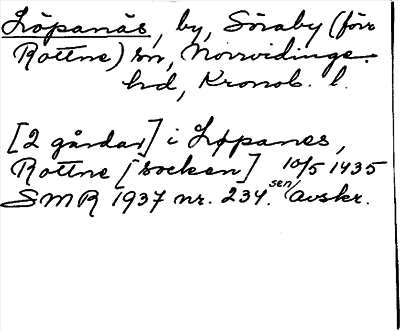 Löpanäs, by, Söraby (förr
Rottne) sn, Norrvidinge
hd, Kronob. l.
[2 gårdar] i Løpanes,
Rottne [socken] 10/5 1435
SMR 1937 nr. 234. sen/avskr.